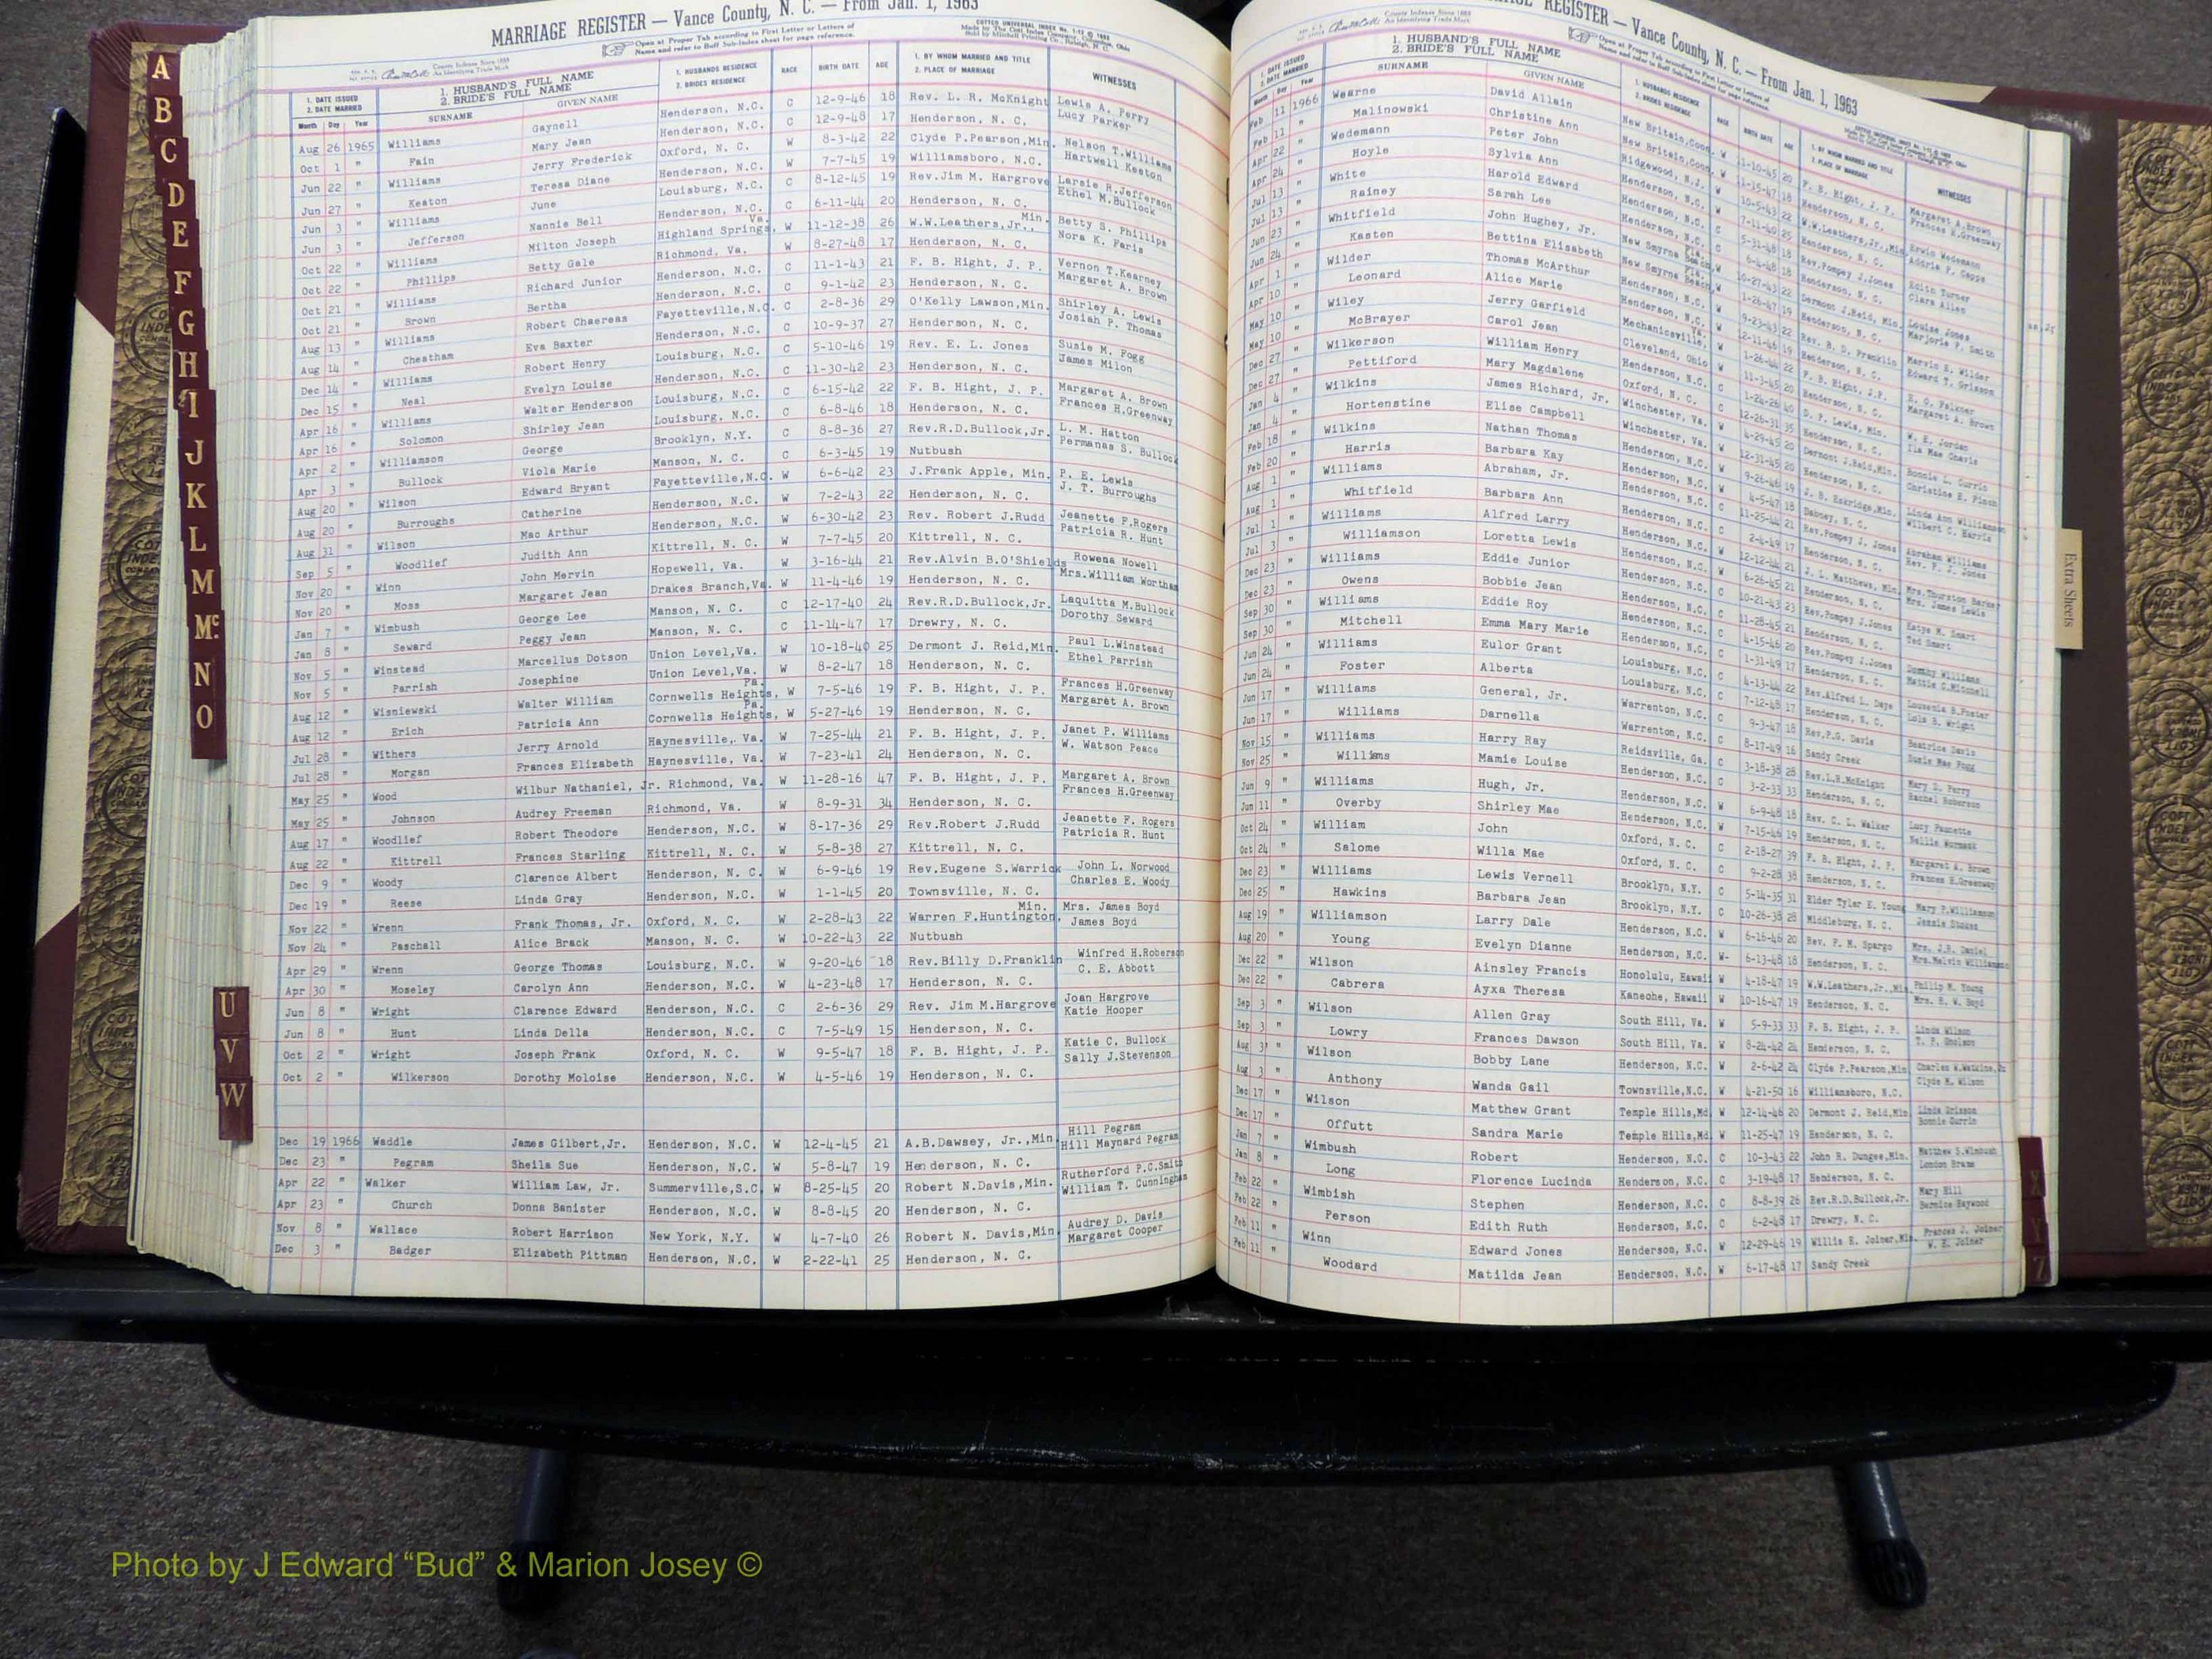 MARRIAGE REGISTER — Vance County, N. C. — From Jan. 1, 1963
Open at Proper Tab according to First Letter or Letters of
Name and refer to Buff Sub-Index sheet for page reference.
1. DATE ISSUED 2. DATE MARRIED
1. HUSBAND'S FULL NAME
2. BRIDE'S FULL NAME
SURNAME GIVEN NAME
1. HUSBANDS RESIDENCE 2. BRIDES RESIDENCE
RACE BIRTH DATE AGE
1. BY WHOM MARRIED AND TITLE 2. PLACE OF MARRIAGE
WITNESSES
Month Day Year
Aug 26 1965 Williams Gaynell Henderson, N.C. C 12-9-46 18 Rev. L. R. McKnight Lewis A. Perry
Oct 1 " Fain Mary Jean Henderson, N.C. C 12-9-48 17 Henderson, N. C. Lucy Parker
Jun 22 " Williams Jerry Frederick Oxford, N. C. W 8-3-42 22 Clyde P.Pearson,Min. Nelson T.Williams
Jun 27 " Keaton Teresa Diane Henderson, N.C. W 7-7-45 19 Williamsboro, N.C. Hartwell Keeton
Jun 3 " Williams June Louisburg, N.C. C 8-12-45 19 Rev.Jim M. Hargrove Larsie R.Jefferson
Jun 3 " Jefferson Nannie Bell Henderson, N.C. C 6-11-44 20 Henderson, N. C. Ethel M.Bullock
Oct 22 " Williams Milton Joseph Highland Springs, Va. W 11-12-38 26 W.W.Leathers,Jr., Min. Betty S. Phillips
Oct 22 " Phillips Betty Gale Richmond, Va. W 8-27-48 17 Henderson, N. C. Nora K. Faris
Oct 21 " Williams Richard Junior Henderson, N.C. C 11-1-43 21 F. B. Hight, J. P. Vernon T.Kearney
Oct 21 " Brown Bertha Henderson, N.C. C 9-1-42 23 Henderson, N. C. Margaret A. Brown
Aug 13 " Williams Robert Chaereas Fayetteville,N.C. C 2-8-36 29 O'Kelly Lawson,Min. Shirley A. Lewis
Aug 14 " Cheatham Eva Baxter Henderson, N.C. C 10-9-37 27 Henderson, N. C. Josiah P. Thomas
Dec 14 " Williams Robert Henry Louisburg, N.C. C 5-10-46 19 Rev. E. L. Jones Susie M. Fogg
Dec 15 " Neal Evelyn Louise Henderson, N.C. C 11-30-42 23 Henderson, N. C. James Milon
Apr 16 " Williams Walter Henderson Louisburg, N.C. C 6-15-42 22 F. B. Hight, J. P. Margaret A. Brown
Apr 16 " Solomon Shirley Jean Louisburg, N.C. C 6-8-46 18 Henderson, N. C. Frances H.Greenway
Apr 2 " Williamson George Brooklyn, N.Y. C 8-8-36 27 Rev.R.D.Bullock,Jr. L. M. Hatton
Apr 3 " Bullock Viola Marie Manson, N. C. C 6-3-45 19 Nutbush Permanas S. Bullock
Aug 20 " Wilson Edward Bryant Fayetteville,N.C. W 6-6-42 23 J.Frank Apple, Min. P. E. Lewis
Aug 20 " Burroughs Catherine Henderson, N.C. W 7-2-43 22 Henderson, N. C. J. T. Burroughs
Aug 31 " Wilson Mac Arthur Henderson, N.C. W 6-30-42 23 Rev. Robert J.Rudd Jeanette F.Rogers
Sep 5 " Woodlief Judith Ann Kittrell, N. C. W 7-7-45 20 Kittrell, N. C. Patricia R. Hunt
Nov 20 " Winn John Mervin Hopewell, Va. W 3-16-44 21 Rev.Alvin B.O'Shields Rowena Nowell
Nov 20 " Moss Margaret Jean Drakes Branch,Va. W 11-4-46 19 Henderson, N. C. Mrs.William Wortham
Jan 7 " Wimbush George Lee Manson, N. C. C 12-17-40 24 Rev.R.D.Bullock,Jr. Laquitta M.Bullock
Jan 8 " Seward Peggy Jean Manson, N. C. C 11-14-47 17 Drewry, N. C. Dorothy Seward
Nov 5 " Winstead Marcellus Dotson Union Level,Va. W 10-18-40 25 Dermont J. Reid,Min. Paul L.Winstead
Nov 5 " Parrish Josephine Union Level,Va. W 8-2-47 18 Henderson, N. C. Ethel Parrish
Aug 12 " Wisniewski Walter William Cornwells Heights, Pa. W 7-5-46 19 F. B. Hight, J. P. Frances H.Greenway
Aug 12 " Erich Patricia Ann Cornwells Heights, Pa. W 5-27-46 19 Henderson, N. C. Margaret A. Brown
Jul 28 " Withers Jerry Arnold Haynesville, Va. W 7-25-44 21 F. B. Hight, J. P. Janet P. Williams
Jul 28 " Morgan Frances Elizabeth Haynesville, Va. W 7-23-41 24 Henderson, N. C. W. Watson Peace
May 25 " Wood Wilbur Nathaniel, Jr. Richmond, Va. W 11-28-16 47 F. B. Hight, J. P. Margaret A. Brown
May 25 " Johnson Audrey Freeman Richmond, Va. W 8-9-31 34 Henderson, N. C. Frances H.Greenway
Aug 17 " Woodlief Robert Theodore Henderson, N.C. W 8-17-36 29 Rev.Robert J.Rudd Jeanette F. Rogers
Aug 22 " Kittrell Frances Starling Kittrell, N. C. W 5-8-38 27 Kittrell, N. C. Patricia R. Hunt
Dec 9 " Woody Clarence Albert Henderson, N. C. W 6-9-46 19 Rev.Eugene S.Warrick John L. Norwood
Dec 19 " Reese Linda Gray Henderson, N.C. W 1-1-45 20 Townsville, N. C. Charles E. Woody
Nov 22 " Wrenn Frank Thomas, Jr. Oxford, N. C. W 2-28-43 22 Warren F.Huntington, Min. Mrs. James Boyd
Nov 24 " Paschall Alice Brack Manson, N. C. W 10-22-43 22 Nutbush James Boyd
Apr 29 " Wrenn George Thomas Louisburg, N.C. W 9-20-46 18 Rev.Billy D.Franklin Winfred H.Roberson
Apr 30 " Moseley Carolyn Ann Henderson, N.C. W 4-23-48 17 Henderson, N. C. C. E. Abbott
Jun 8 " Wright Clarence Edward Henderson, N.C. C 2-6-36 29 Rev. Jim M.Hargrove Joan Hargrove
Jun 8 " Hunt Linda Della Henderson, N.C. C 7-5-49 15 Henderson, N. C. Katie Hooper
Oct 2 " Wright Joseph Frank Oxford, N. C. W 9-5-47 18 F. B. Hight, J. P. Katie C. Bullock
Oct 2 " Wilkerson Dorothy Moloise Henderson, N.C. W 4-5-46 19 Henderson, N. C. Sally J.Stevenson
Dec 19 1966 Waddle James Gilbert,Jr. Henderson, N.C. W 12-4-45 21 A.B.Dawsey, Jr.,Min. Hill Pegram
Dec 23 " Pegram Sheila Sue Henderson, N.C. W 5-8-47 19 Henderson, N. C. Hill Maynard Pegram
Apr 22 " Walker William Law, Jr. Summerville,S.C. W 8-25-45 20 Robert N.Davis,Min. Rutherford P.C.Smith
Apr 23 " Church Donna Banister Henderson, N.C. W 8-8-45 20 Henderson, N. C. William T. Cunningham
Nov 8 " Wallace Robert Harrison New York, N.Y. W 4-7-40 26 Robert N. Davis,Min. Audrey D. Davis
Dec 3 " Badger Elizabeth Pittman Henderson, N.C. W 2-22-41 25 Henderson, N. C. Margaret Cooper
A
B
C
D
E
F
G
H
I
J
K
L
M
Mc
N
O
U
V
W
REGISTER — Vance County, N. C. — From Jan. 1, 1963
1. HUSBAND'S FULL NAME
2. BRIDE'S FULL NAME
SURNAME GIVEN NAME
Feb 11 1966 Wearne David Allain New Britain,Conn. W 11-10-45 20 F. B. Hight, J. P. Margaret A.Brown
Feb 11 " Malinowski Christine Ann New Britain,Conn. W 11-15-47 18 Henderson, N. C. Frances H.Greenway
Apr 22 " Wedemann Peter John Ridgewood, N.J. W 10-5-43 22 W.W.Leathers,Jr.,Min. Erwin Wedemann
Apr 24 " Hoyle Sylvia Ann Henderson, N.C. W 7-11-40 25 Henderson, N. C.
Jul 13 " White Harold Edward Henderson, N.C. C 5-31-48 18 Rev.Pompey J.Jones Edith Turner
Jul 13 " Rainey Sarah Lee Henderson, N.C. C 6-4-48 18 Henderson, N. C. Clara Allen
Jun 23 " Whitfield John Hughey, Jr. New Smyrna Beach, Fla. W 10-27-43 22 Dermont J.Reid, Min. Louise Jones
Jun 24 " Kasten Bettina Elisabeth New Smyrna Beach, Fla. W 1-26-47 19 Henderson, N. C. Marjorie P. Smith
Apr 1 " Wilder Thomas McArthur Henderson, N.C. W 9-23-43 22 Rev. B. D. Franklin Marvin E. Wilder
Apr 10 " Leonard Alice Marie Henderson, N.C. W 12-11-46 19 Henderson, N. C. Edward T. Grissom
May 10 " Wiley Jerry Garfield Mechanicsville, Va. W 1-26-44 22 F. B. Hight, J.P. E. O. Falkner
May 10 " McBrayer Carol Jean Cleveland, Ohio W 11-3-45 20 Henderson, N. C. Margaret A. Brown
Dec 27 " Wilkerson William Henry Henderson, N.C. C 1-24-26 40 D. P. Lewis, Min. W. E. Jordan
Dec 27 " Pettiford Mary Magdalene Oxford, N. C. C 12-26-31 35 Henderson, N. C. Ila Mae Chavis
Jan 4 " Wilkins James Richard, Jr. Winchester, Va. W 4-29-45 20 Dermont J.Reid,Min. Bonnie L. Currin
Jan 4 " Hortenstine Elise Campbell Winchester, Va. W 12-31-45 20 Henderson, N. C. Christine E. Finch
Feb 18 " Wilkins Nathan Thomas Henderson, N.C. W 9-26-46 19 J. B. Eskridge,Min. Linda Ann Williamson
Feb 20 " Harris Barbara Kay Henderson, N.C. W 4-5-47 18 Dabney, N. C. Wilbert C. Harris
Aug 1 " Williams Abraham, Jr. Henderson, N.C. C 11-25-44 21 Rev.Pompey J. Jones Abraham Williams
Aug 1 " Whitfield Barbara Ann Henderson, N.C. C 2-4-49 17 Henderson, N. C. Rev. P. J. Jones
Jul 1 " Williams Alfred Larry Henderson, N.C. W 12-12-44 21 J. L. Matthews, Min. Mrs.Thurston Barker
Jul 3 " Williamson Loretta Lewis Henderson, N.C. W 6-26-45 21 Henderson, N. C. Mrs. James Lewis
Dec 23 " Williams Eddie Junior Henderson, N.C. C 10-21-43 23 Rev.Pompey J.Jones Katye M. Smart
Dec 23 " Owens Bobbie Jean Henderson, N.C. C 11-28-45 21 Henderson, N. C. Ted Smart
Sep 30 " Williams Eddie Roy Henderson, N.C. C 4-15-46 20 Rev.Pompey J.Jones Dorothy Williams
Sep 30 " Mitchell Emma Mary Marie Henderson, N.C. C 1-31-49 17 Henderson, N. C. Mattie C.Mitchell
Jun 24 " Williams Eulor Grant Louisburg, N.C. C 4-13-44 22 Rev.Alfred L. Daye Louvenia B.Foster
Jun 24 " Foster Alberta Louisburg, N.C. C 7-12-48 17 Henderson, N. C. Lula B. Wright
Jun 17 " Williams General, Jr. Warrenton, N.C. C 9-3-47 18 Rev.P.G. Davis Beatrice Davis
Jun 17 " Williams Darnella Warrenton, N.C. C 8-17-49 16 Sandy Creek Susie Mae Fogg
Nov 15 " Williams Harry Ray Reidsville, Ga. C 3-18-38 28 Rev.L.R.McKnight Mary D. Perry
Nov 25 " Williams Mamie Louise Henderson, N.C. C 3-2-33 33 Henderson, N. C. Rachel Roberson
Jun 9 " Williams Hugh, Jr. Henderson, N.C. W 6-9-48 18 Rev. C. L. Walker Lucy Faucette
Jun 11 " Overby Shirley Mae Henderson, N.C. W 7-15-46 19 Henderson, N. C. Nellie Wormack
Oct 24 " William John Oxford, N. C. C 2-18-27 39 F. B. Hight, J. P. Margaret A. Brown
Oct 24 " Salome Willa Mae Oxford, N. C. C 9-2-28 38 Henderson, N. C. Frances H.Greenway
Dec 23 " Williams Lewis Vernell Brooklyn, N.Y. C 5-14-35 31 Elder Tyler E. Young Mary P.Williamson
Dec 25 " Hawkins Barbara Jean Brooklyn, N.Y. C 10-26-38 28 Middleburg, N. C.
Aug 19 " Williamson Larry Dale Henderson, N.C. W 6-16-46 20 Rev. P. M. Spargo Mrs. J.B. Daniel
Aug 20 " Young Evelyn Dianne Henderson, N.C. W- 6-13-48 18 Henderson, N. C. Mrs.Melvin Williamson
Dec 22 " Wilson Ainsley Francis Honolulu, Hawaii W 4-18-47 19 W.W.Leathers,Jr.,Min. Philip M. Young
Dec 22 " Cabrera Ayxa Theresa Kaneohe, Hawaii W 10-16-47 19 Henderson, N. C. Mrs. H. W. Boyd
Sep 3 " Wilson Allen Gray South Hill, Va. W 5-9-33 33 F. B. Hight, J. P. Linda Wilson
Sep 3 " Lowry Frances Dawson South Hill, Va. W 8-24-42 24 Henderson, N. C. T. P. Gholson
Aug 3 " Wilson Bobby Lane Henderson, N.C. W 2-6-42 24 Clyde P.Pearson,Min. Charles W.Watkins,Jr
Aug 3 " Anthony Wanda Gail Townsville,N.C. W 4-21-50 16 Williamsboro, N.C. Clyde M. Wilson
Dec 17 " Wilson Matthew Grant Temple Hills,Md. W 12-14-46 20 Dermont J. Reid,Min. Linda Grissom
Dec 17 " Offutt Sandra Marie Temple Hills,Md. W 11-25-47 19 Henderson, N. C. Bonnie Currin
Jan 7 " Wimbush Robert Henderson, N.C. C 10-3-43 22 John R. Dungee,Min. Matthew S.Wimbush
Jan 8 " Long Florence Lucinda Henderson, N.C. C 3-19-48 17 Henderson, N. C. London Brame
Feb 22 " Wimbish Stephen Henderson, N.C. C 8-8-39 26 Rev.R.D.Bullock,Jr. Mary Hill
Feb 22 " Person Edith Ruth Henderson, N.C. C 6-2-48 17 Drewry, N. C. Bernice Haywood
Feb 11 " Winn Edward Jones Henderson, N.C. W 12-29-46 19 Willis E. Joiner,Min. Frances J. Joiner
Feb 11 " Woodard Matilda Jean Henderson, N.C. W 6-17-48 17 Sandy Creek W. E. Joiner
Extra Sheets
X
Y
Z
Photo by J Edward “Bud” & Marion Josey ©